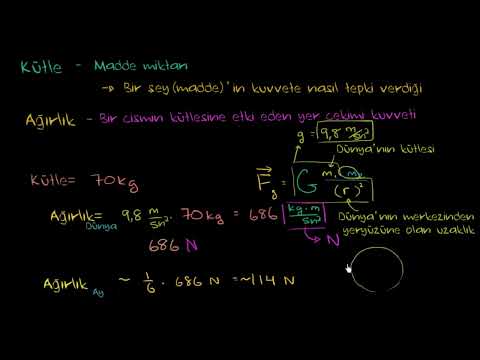 Kütle - Madde miktarı
→ Bir şey (madde)'in kuvvete nasıl tepki verdiği
Ağırlık - Bir cismin kütlesine etki eden yer çekimi kuvveti
g = 9,8 m/sn²
Dünya'nın kütlesi
Kütle = 70kg
F_g = G m₁ m₂/(r)²
Ağırlık Dünya = 9,8 m/sn² · 70 kg = 686 kg·m/sn²
→ N
Dünya'nın merkezinden
yeryüzüne olan uzaklık
686 N
Ağırlık Ay ~ 1/6 · 686 N = ~114 N